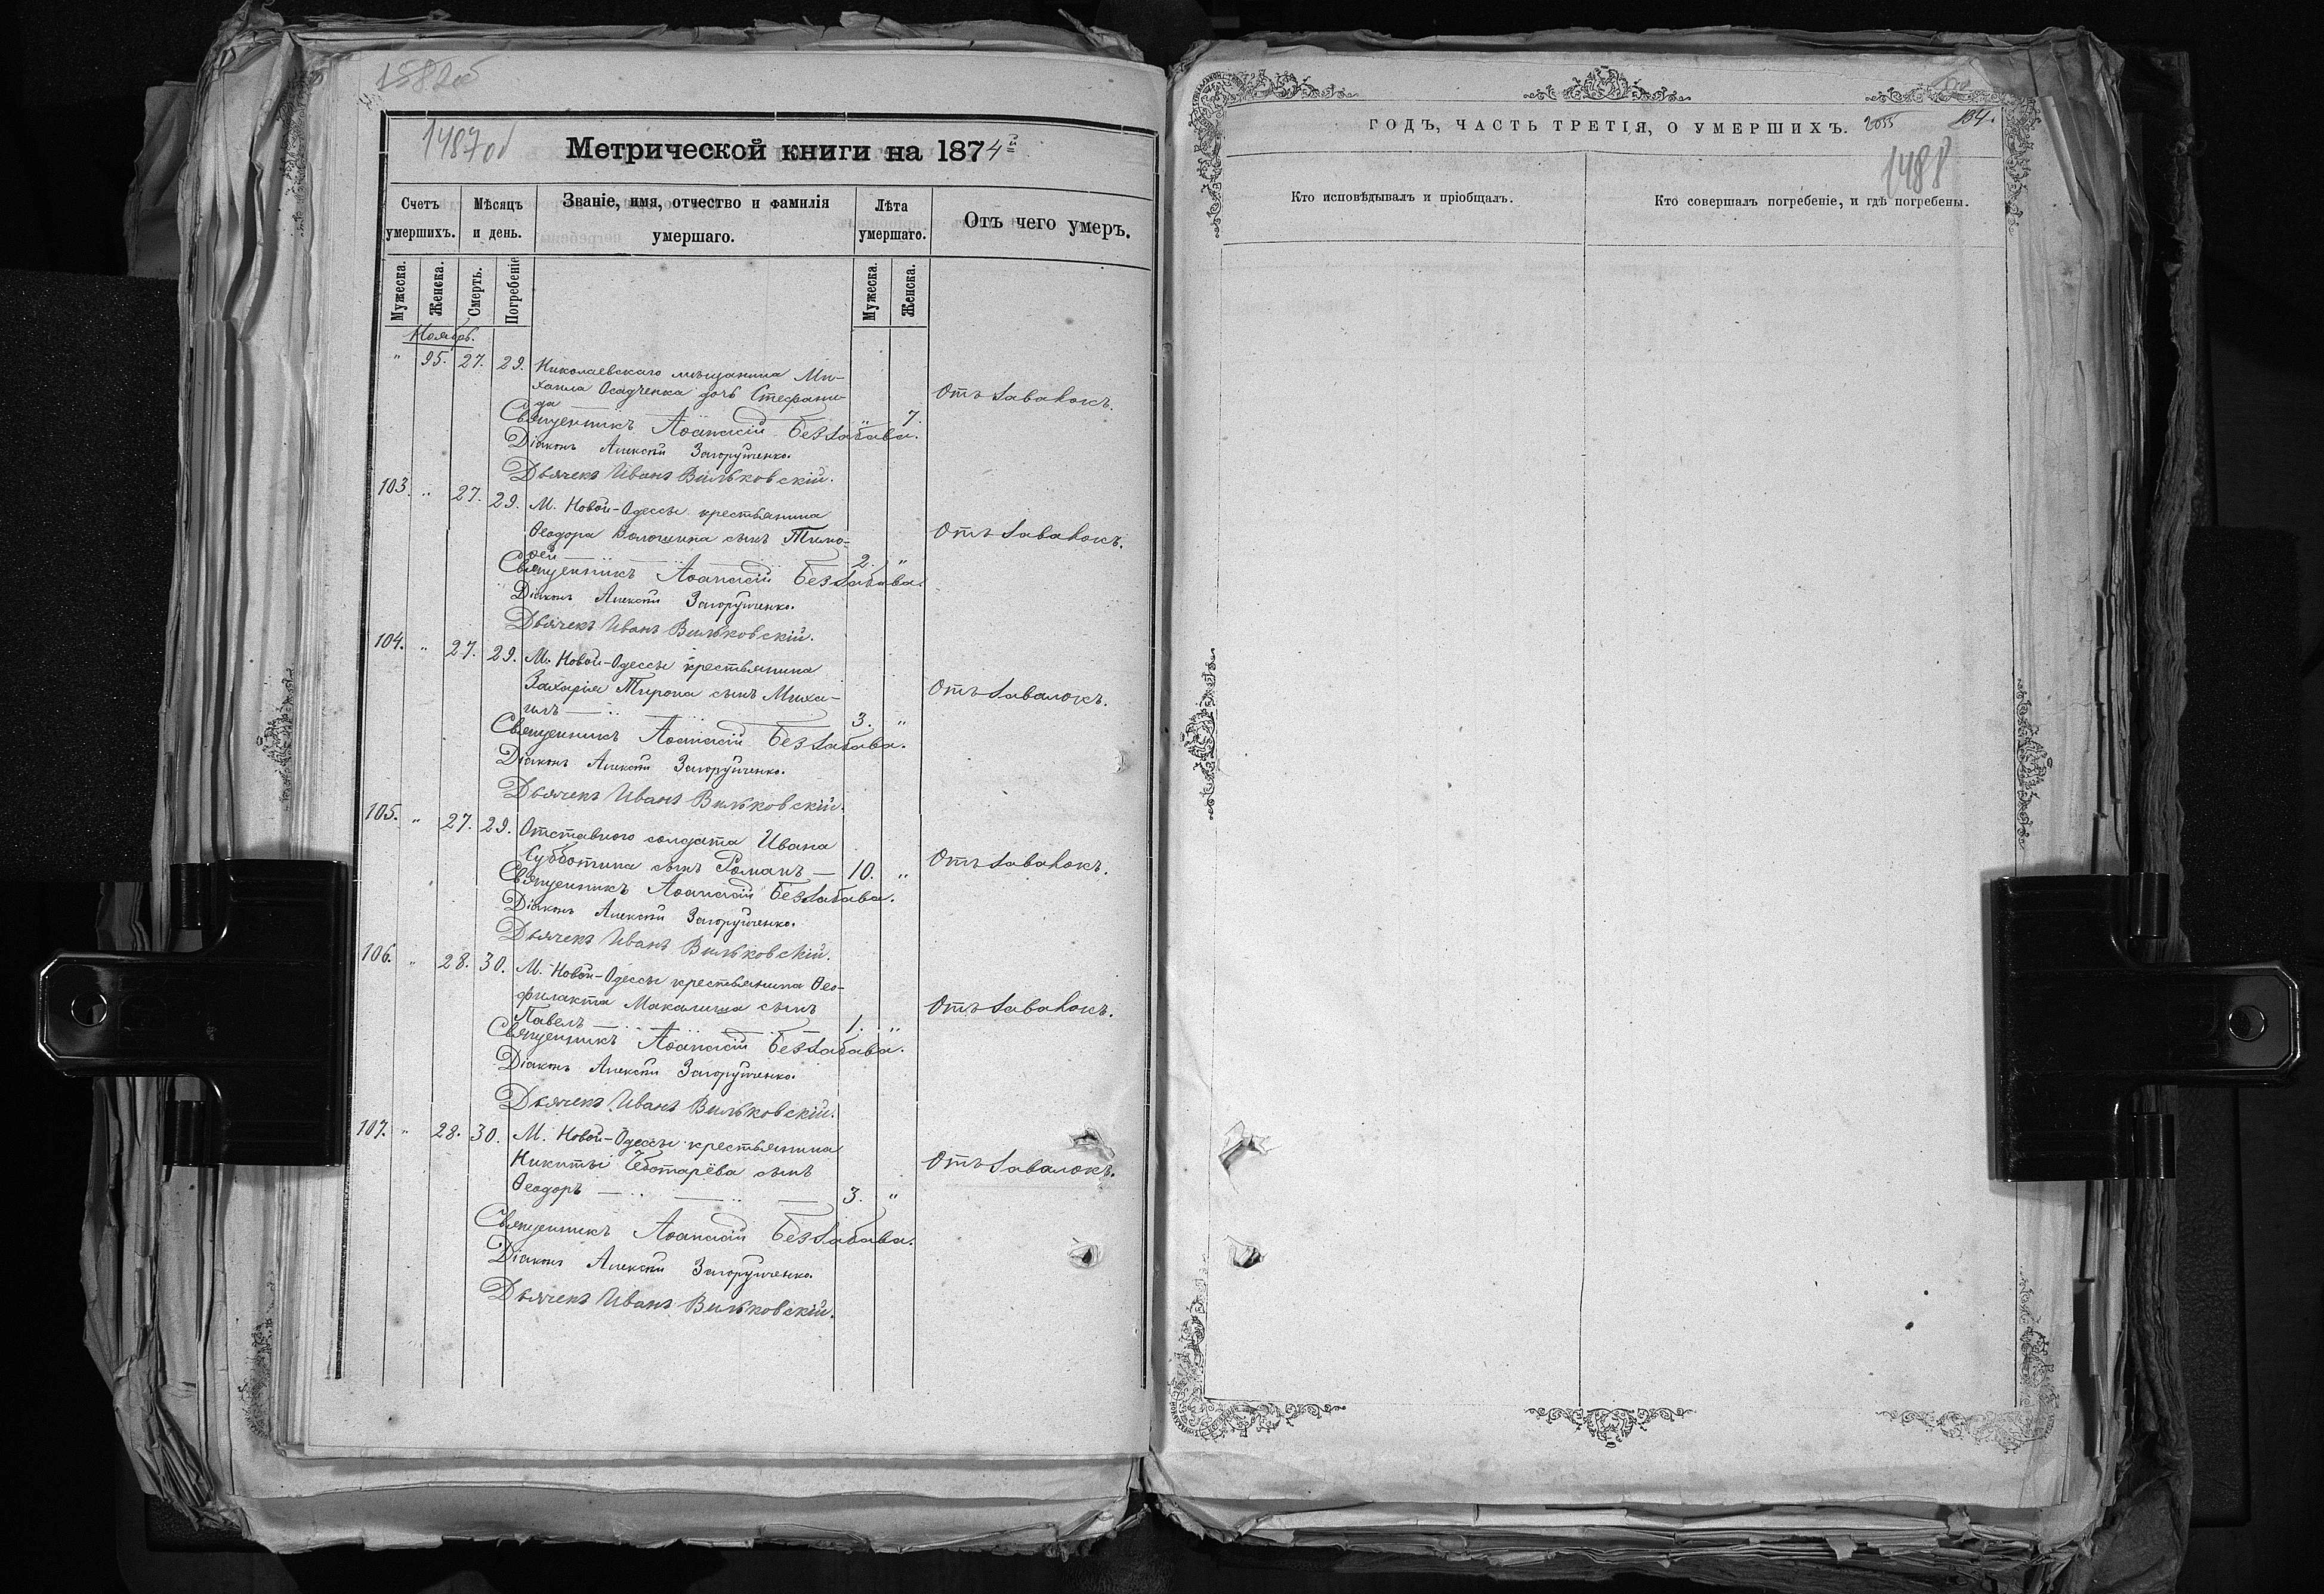 158 об
1487 об
Метрической книги на 1874 г
Счетъ умершихъ.
Мѣсяцъ и день.
Званіе, имя, отчество и фамилія умершаго.
Лѣта умершаго.
Отъ чего умеръ.
Мужеска.
Женска.
Смерть.
Погребеніе
Мужеска.
Женска.
Ноябрь.
" 95. 27. 29. Николаевскаго мѣщанина Ми-
хаила Осадченка дочь Стефани-
да " 7. Отъ давлокъ.
Священникъ Аѳанасій Беззабава.
Діаконъ Алексѣй Загоруйченко.
Дьячекъ Иванъ Вильковскій.
103. " 27. 29. М. Новой-Одессы крестьянина
Ѳеодора Волошина сынъ Тимо-
ѳей 2. "
Священникъ Аѳанасій Беззабава.
Діаконъ Алексѣй Загоруйченко.
Дьячекъ Иванъ Вильковскій.
104. " 27. 29. М. Новой-Одессы крестьянина
Захарія Тирона сынъ Миха-
илъ 3. "
Священникъ Аѳанасій Беззабава.
Діаконъ Алексѣй Загоруйченко.
Дьячекъ Иванъ Вильковскій.
105. " 27. 29. Отставного солдата Ивана
Субботина сынъ Романъ — 10. "
Священникъ Аѳанасій Беззабава.
Діаконъ Алексѣй Загоруйченко.
Дьячекъ Иванъ Вильковскій.
106. " 28. 30. М. Новой-Одессы крестьянина Ѳео-
филакта Макалиша сынъ
Павелъ 1. "
Священникъ Аѳанасій Беззабава.
Діаконъ Алексѣй Загоруйченко.
Дьячекъ Иванъ Вильковскій.
107. " 28. 30. М. Новой-Одессы крестьянина
Никиты Чеботарёва сынъ
Ѳеодоръ 3. "
Священникъ Аѳанасій Беззабава.
Діаконъ Алексѣй Загоруйченко.
Дьячекъ Иванъ Вильковскій.
ГОДЪ, ЧАСТЬ ТРЕТІЯ, О УМЕРШИХЪ.
1488
Кто исповѣдывалъ и пріобщалъ.
Кто совершалъ погребеніе, и гдѣ погребены.